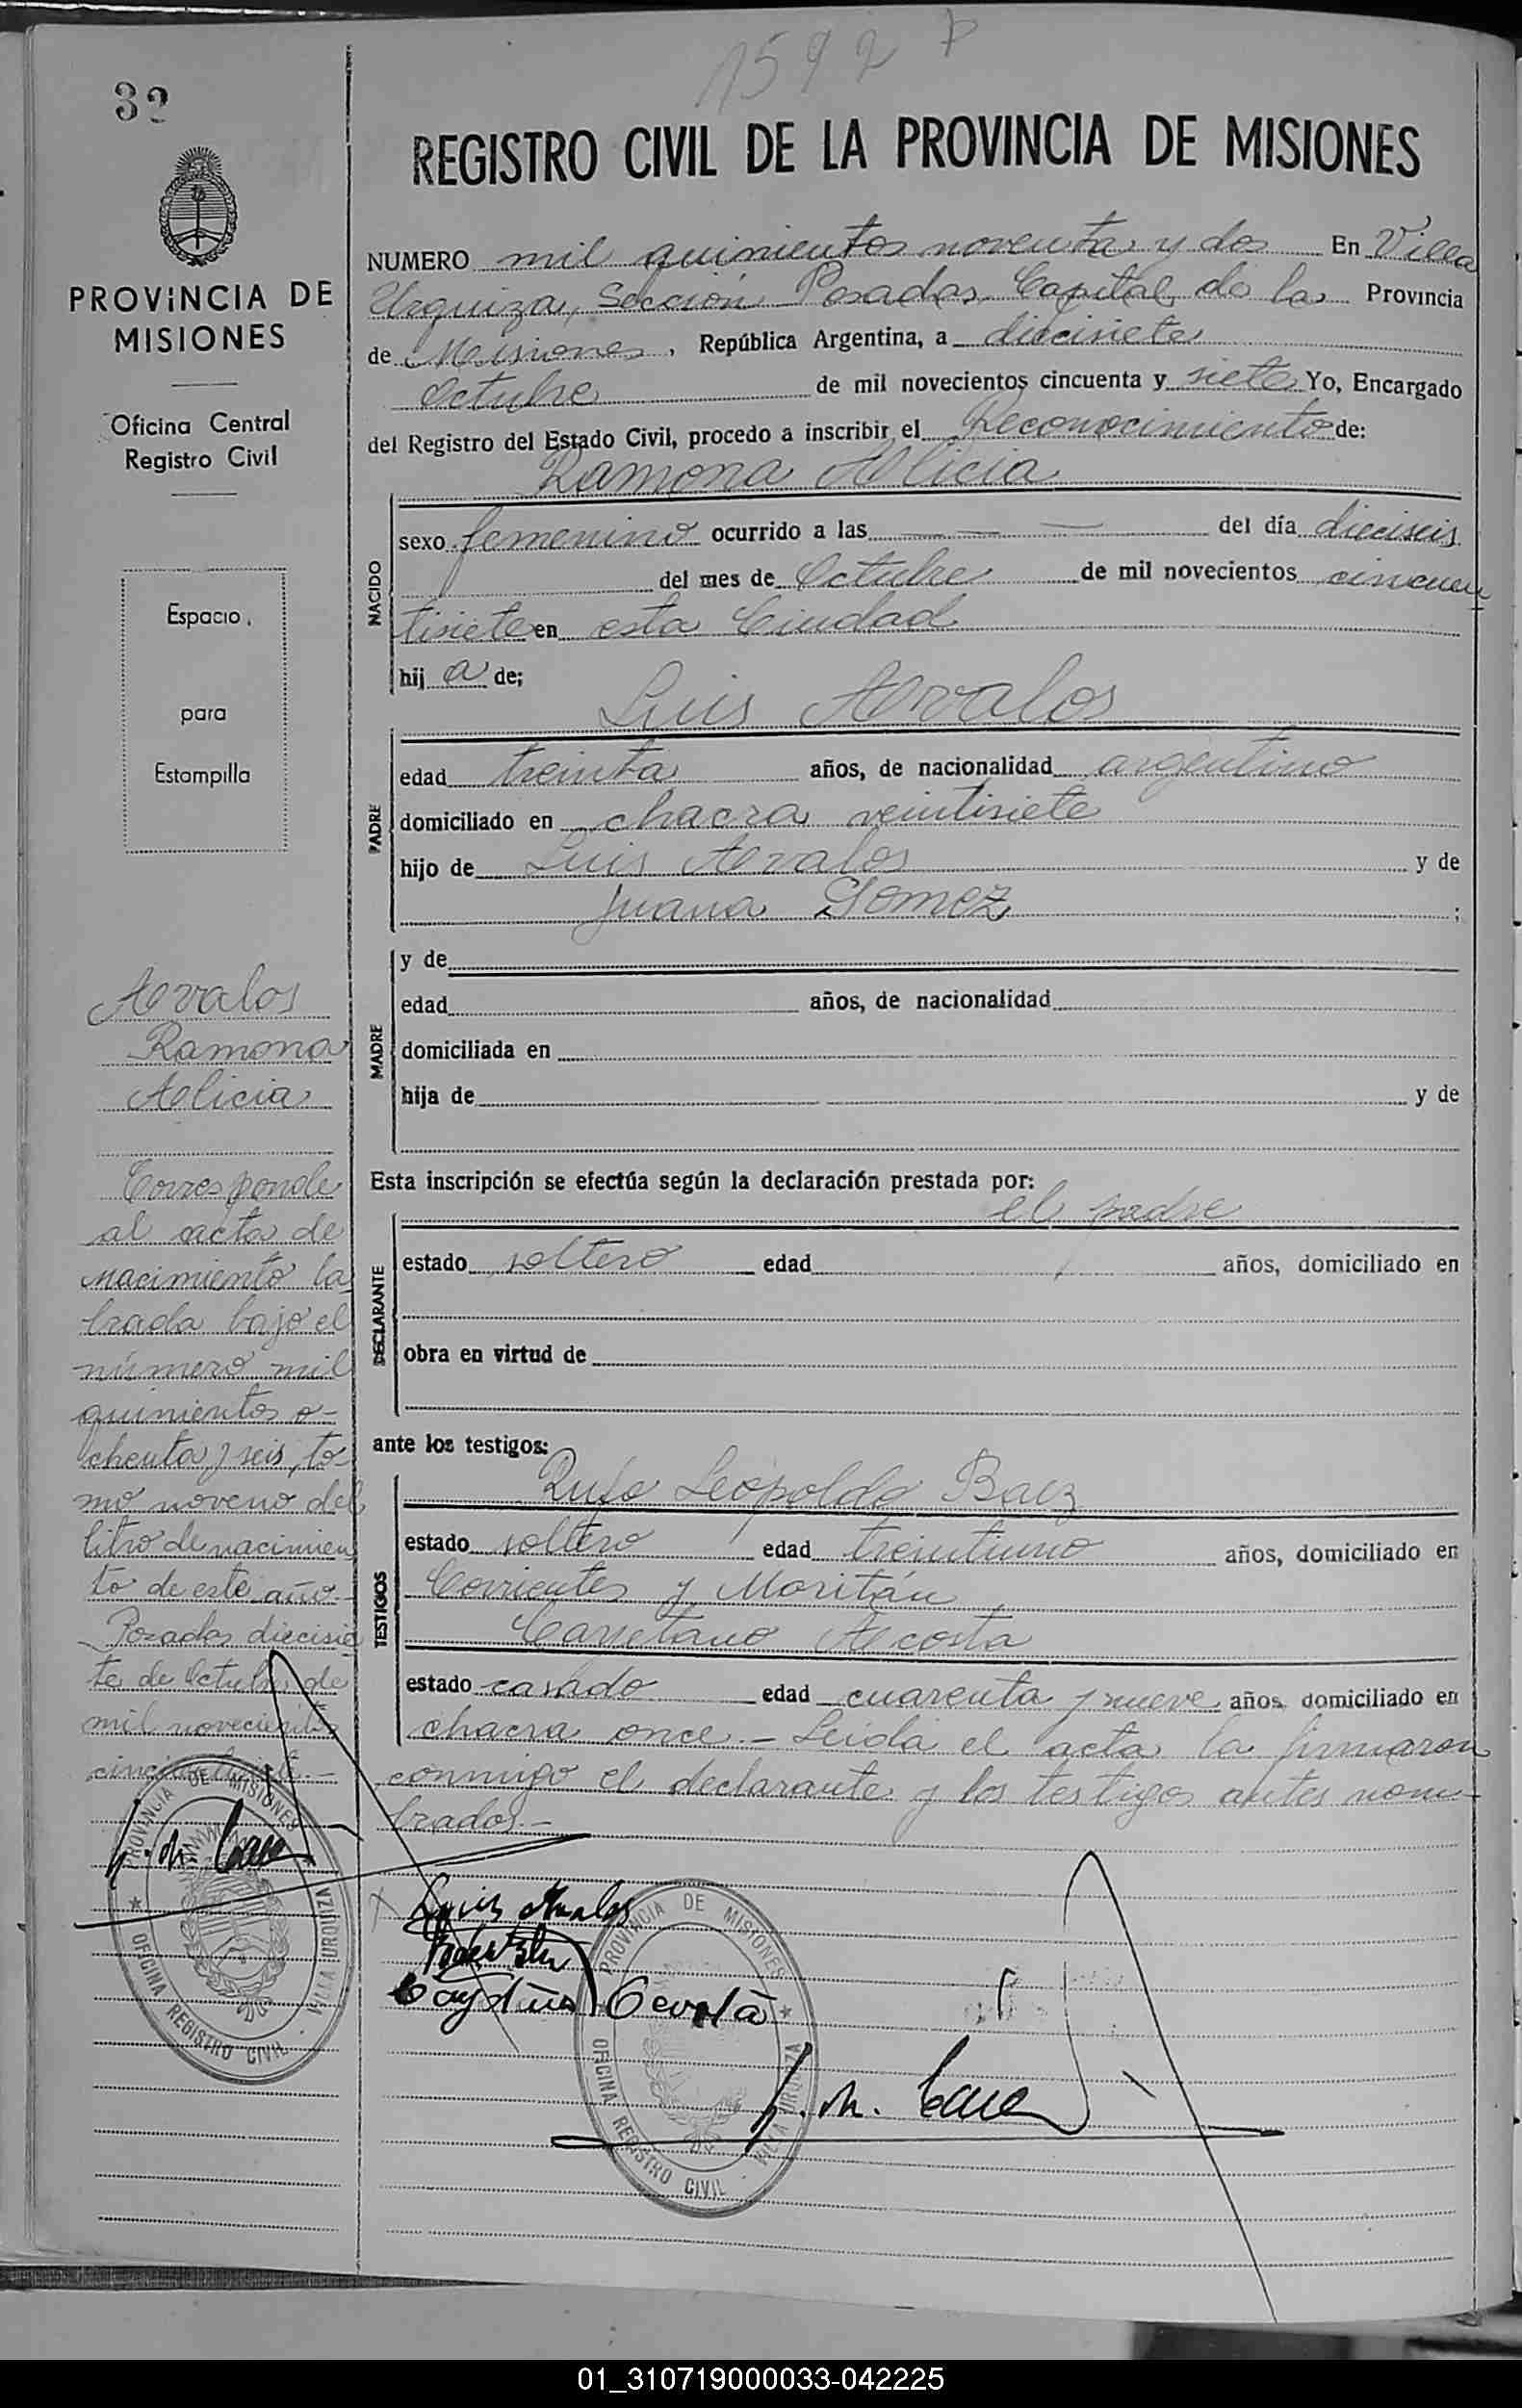 1592 P
32
REGISTRO CIVIL DE LA PROVINCIA DE MISIONES
PROVINCIA DE
MISIONES
Oficina Central
Registro Civil
Espacio
para
Estampilla
Avalos
Ramona
Alicia
Corresponde
al acta de
nacimiento la
brada bajo el
número mil
quinientos o-
chenta y seis, to-
mo noveno del
libro de nacimien
to de este año.-
Posadas diecisie
te de Octubre de
mil novecientos
cincuentisiete.-
PROVINCIA DE MISIONES
OFICINA REGISTRO CIVIL - VILLA URQUIZA
NUMERO mil quinientos noventa y dos En Villa
Urquiza, Sección Posadas Capital de la Provincia
de Misiones, República Argentina, a diecisiete
Octubre de mil novecientos cincuenta y siete Yo, Encargado
del Registro del Estado Civil, procedo a inscribir el Reconocimiento de:
Ramona Alicia
NACIDO
sexo femenino ocurrido a las — — — del día dieciseis
del mes de Octubre de mil novecientos cincuen
tisiete en esta Ciudad
hij a de;
Luis Avalos
PADRE
edad treinta años, de nacionalidad argentino
domiciliado en chacra veintisiete
hijo de Luis Avalos y de
Juana Gomez ;
MADRE
y de
edad años, de nacionalidad
domiciliada en
hija de y de
Esta inscripción se efectúa según la declaración prestada por:
el padre
DECLARANTE
estado soltero edad años, domiciliado en
obra en virtud de
ante los testigos:
Rufo Leopoldo Baez
TESTIGOS
estado soltero edad treintiuno años, domiciliado en
Corrientes y Moritán
Cayetano Acosta
estado casado edad cuarenta y nueve años domiciliado en
chacra once.- Leida el acta la firmaron
conmigo el declarante y los testigos antes nom-
brados.-
Luis Avalos
PROVINCIA DE MISIONES
OFICINA REGISTRO CIVIL - VILLA URQUIZA
01_310719000033-042225